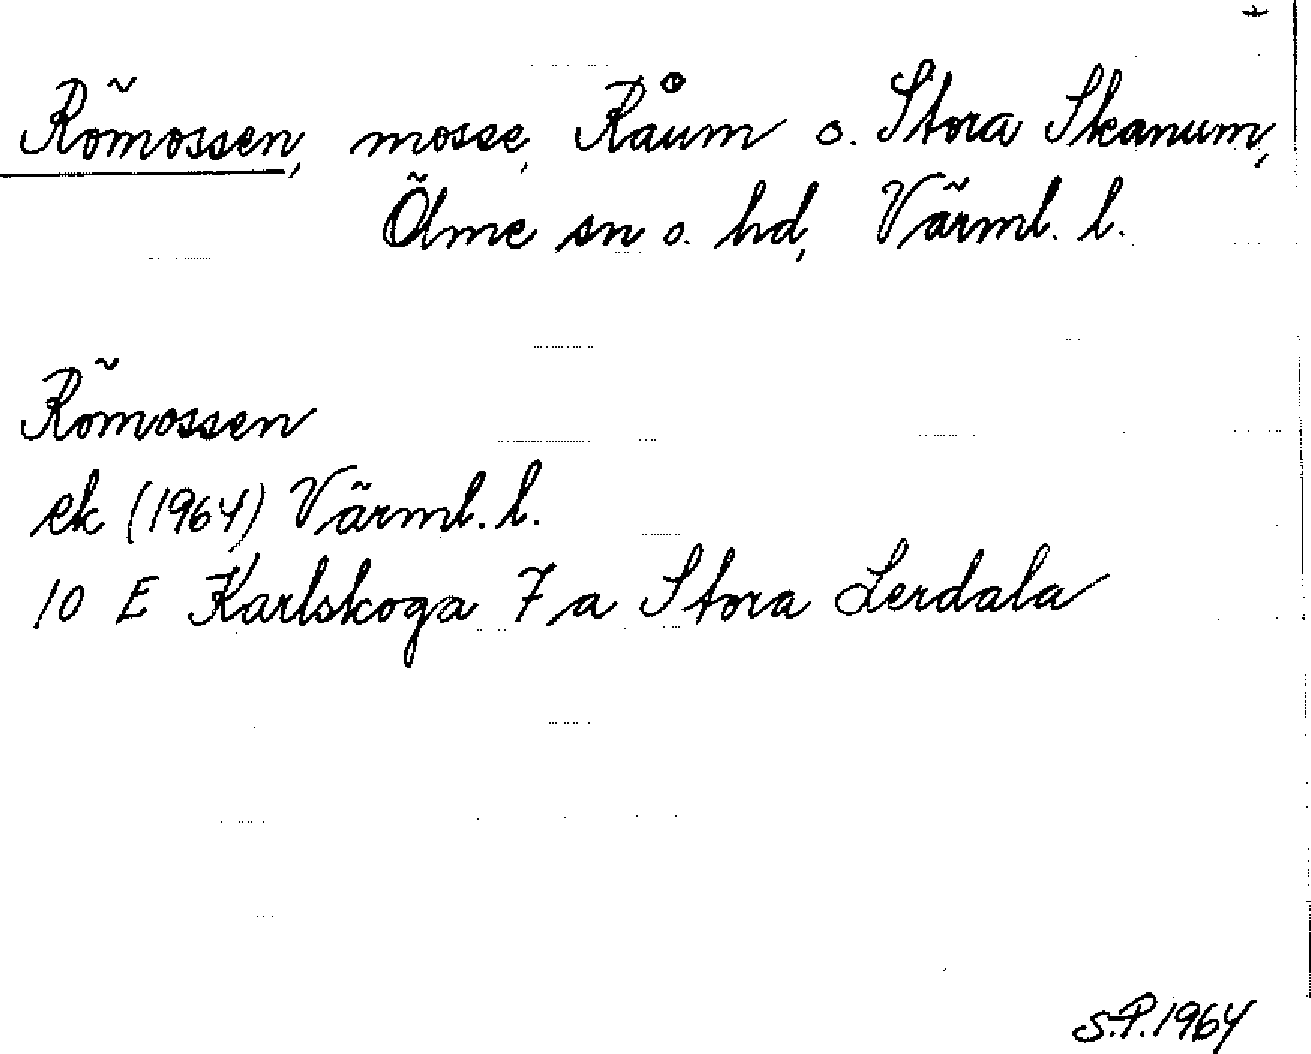 Römossen, mosse, Råum o. Stora Skanum,
Ölme sn o. hd, Värml. l.
Römossen
ek (1964) Värml. l.
10 E Karlskoga 7 a Stora Lerdala
S.P. 1964